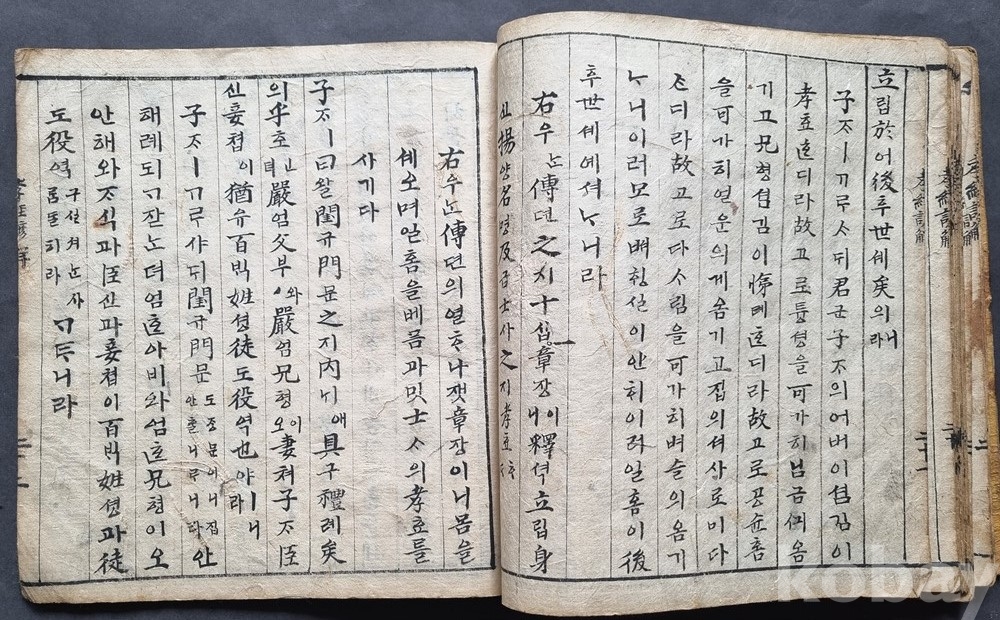 立립於어後후世셰矣의니라
子ᄌᆞㅣᄀᆞᄅᆞ샤ᄃᆡ君군子ᄌᆞ의어버이셤김이
孝효ᄒᆞᆫ디라故고로튱셩을可가히님금ᄭᅴ옴
기고兄형셤김이悌뎨ᄒᆞᆫ디라故고로공슌홈
을可가히얼운의게옴기고집의셔사로미다
ᄉᆞᆫ디라故고로다ᄉᆞ림을可가히벼슬의옴기
ᄂᆞ니이러모로ᄒᆡᆼ실이안히이러일홈이後
후世셰예셔ᄂᆞ니라
右우ᄂᆞᆫ傳뎐之지十십一章장이니釋셕立립身
신揚양名명及급士사之지孝효
右우ᄂᆞᆫ傳뎐의열ᄒᆞ나잿章장이니몸을
셰오며일홈을베폼과밋士ᄉᆞ의孝효를
사기다
子ᄌᆞㅣ曰왈閨규門문之지內ᄂᆡ애具구禮례矣
의乎호ㅣㄴ뎌嚴엄父부와嚴엄兄형이오妻쳐子ᄌᆞ臣
신妾쳡이猶유百ᄇᆡᆨ姓셩徒도役역也야ㅣ니라
子ᄌᆞㅣᄀᆞᄅᆞ샤ᄃᆡ閨규門문도조문이니집안흘니ᄅᆞ니라안
해례되ᄀᆞ잔ᄂᆞᆫ뎌엄ᄒᆞᆫ아비와엄ᄒᆞᆫ兄형이오
안해와ᄌᆞ식과臣신과妾쳡이百ᄇᆡᆨ姓셩과徒
도役역구실셔ᄂᆞᆫ사ᄅᆞᆷ들히라ᄀᆞᄐᆞ니라
孝經諺解
kobay